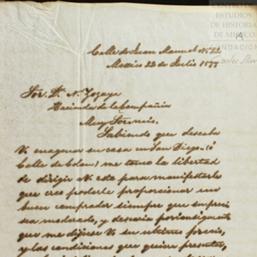 CENTRO DE
ESTUDIOS
DE HISTORIA
DE MEXICO
FUNDACION
Calle de Juan Manuel Nº 22
Mexico 22 de Julio 1877
Sor. Dn. N. Zozaya
Hacienda de la Compañia
Muy Sor. mio.
Sabiendo que desea
V. enagenar su casa en San Diego, (ó
Calle de ) me tomo la libertad
de dirigir á V. esta para manifestarle
que creo poderle proporcionar un
buen comprador siempre que su precio
sea moderado, y desearia por consiguiente
que me dijese V. su ultimo precio,
y las condiciones que quiera